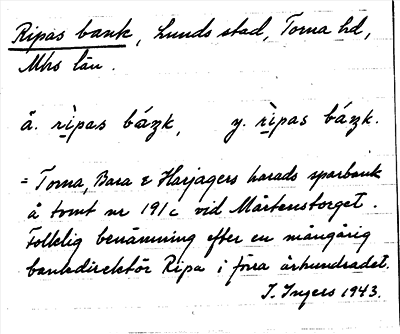 Ripas bank, Lunds stad, Torna hd,
Mhs län.
å. rìpas báŋk, y. rìpas báŋk.
= Torna, Bara & Harjagers härads sparbank
å tomt nr 191c vid Mårtenstorget.
Folklig benämning efter en mångårig
bankdirektör Ripa i förra århundradet.
I. Ingers 1943.